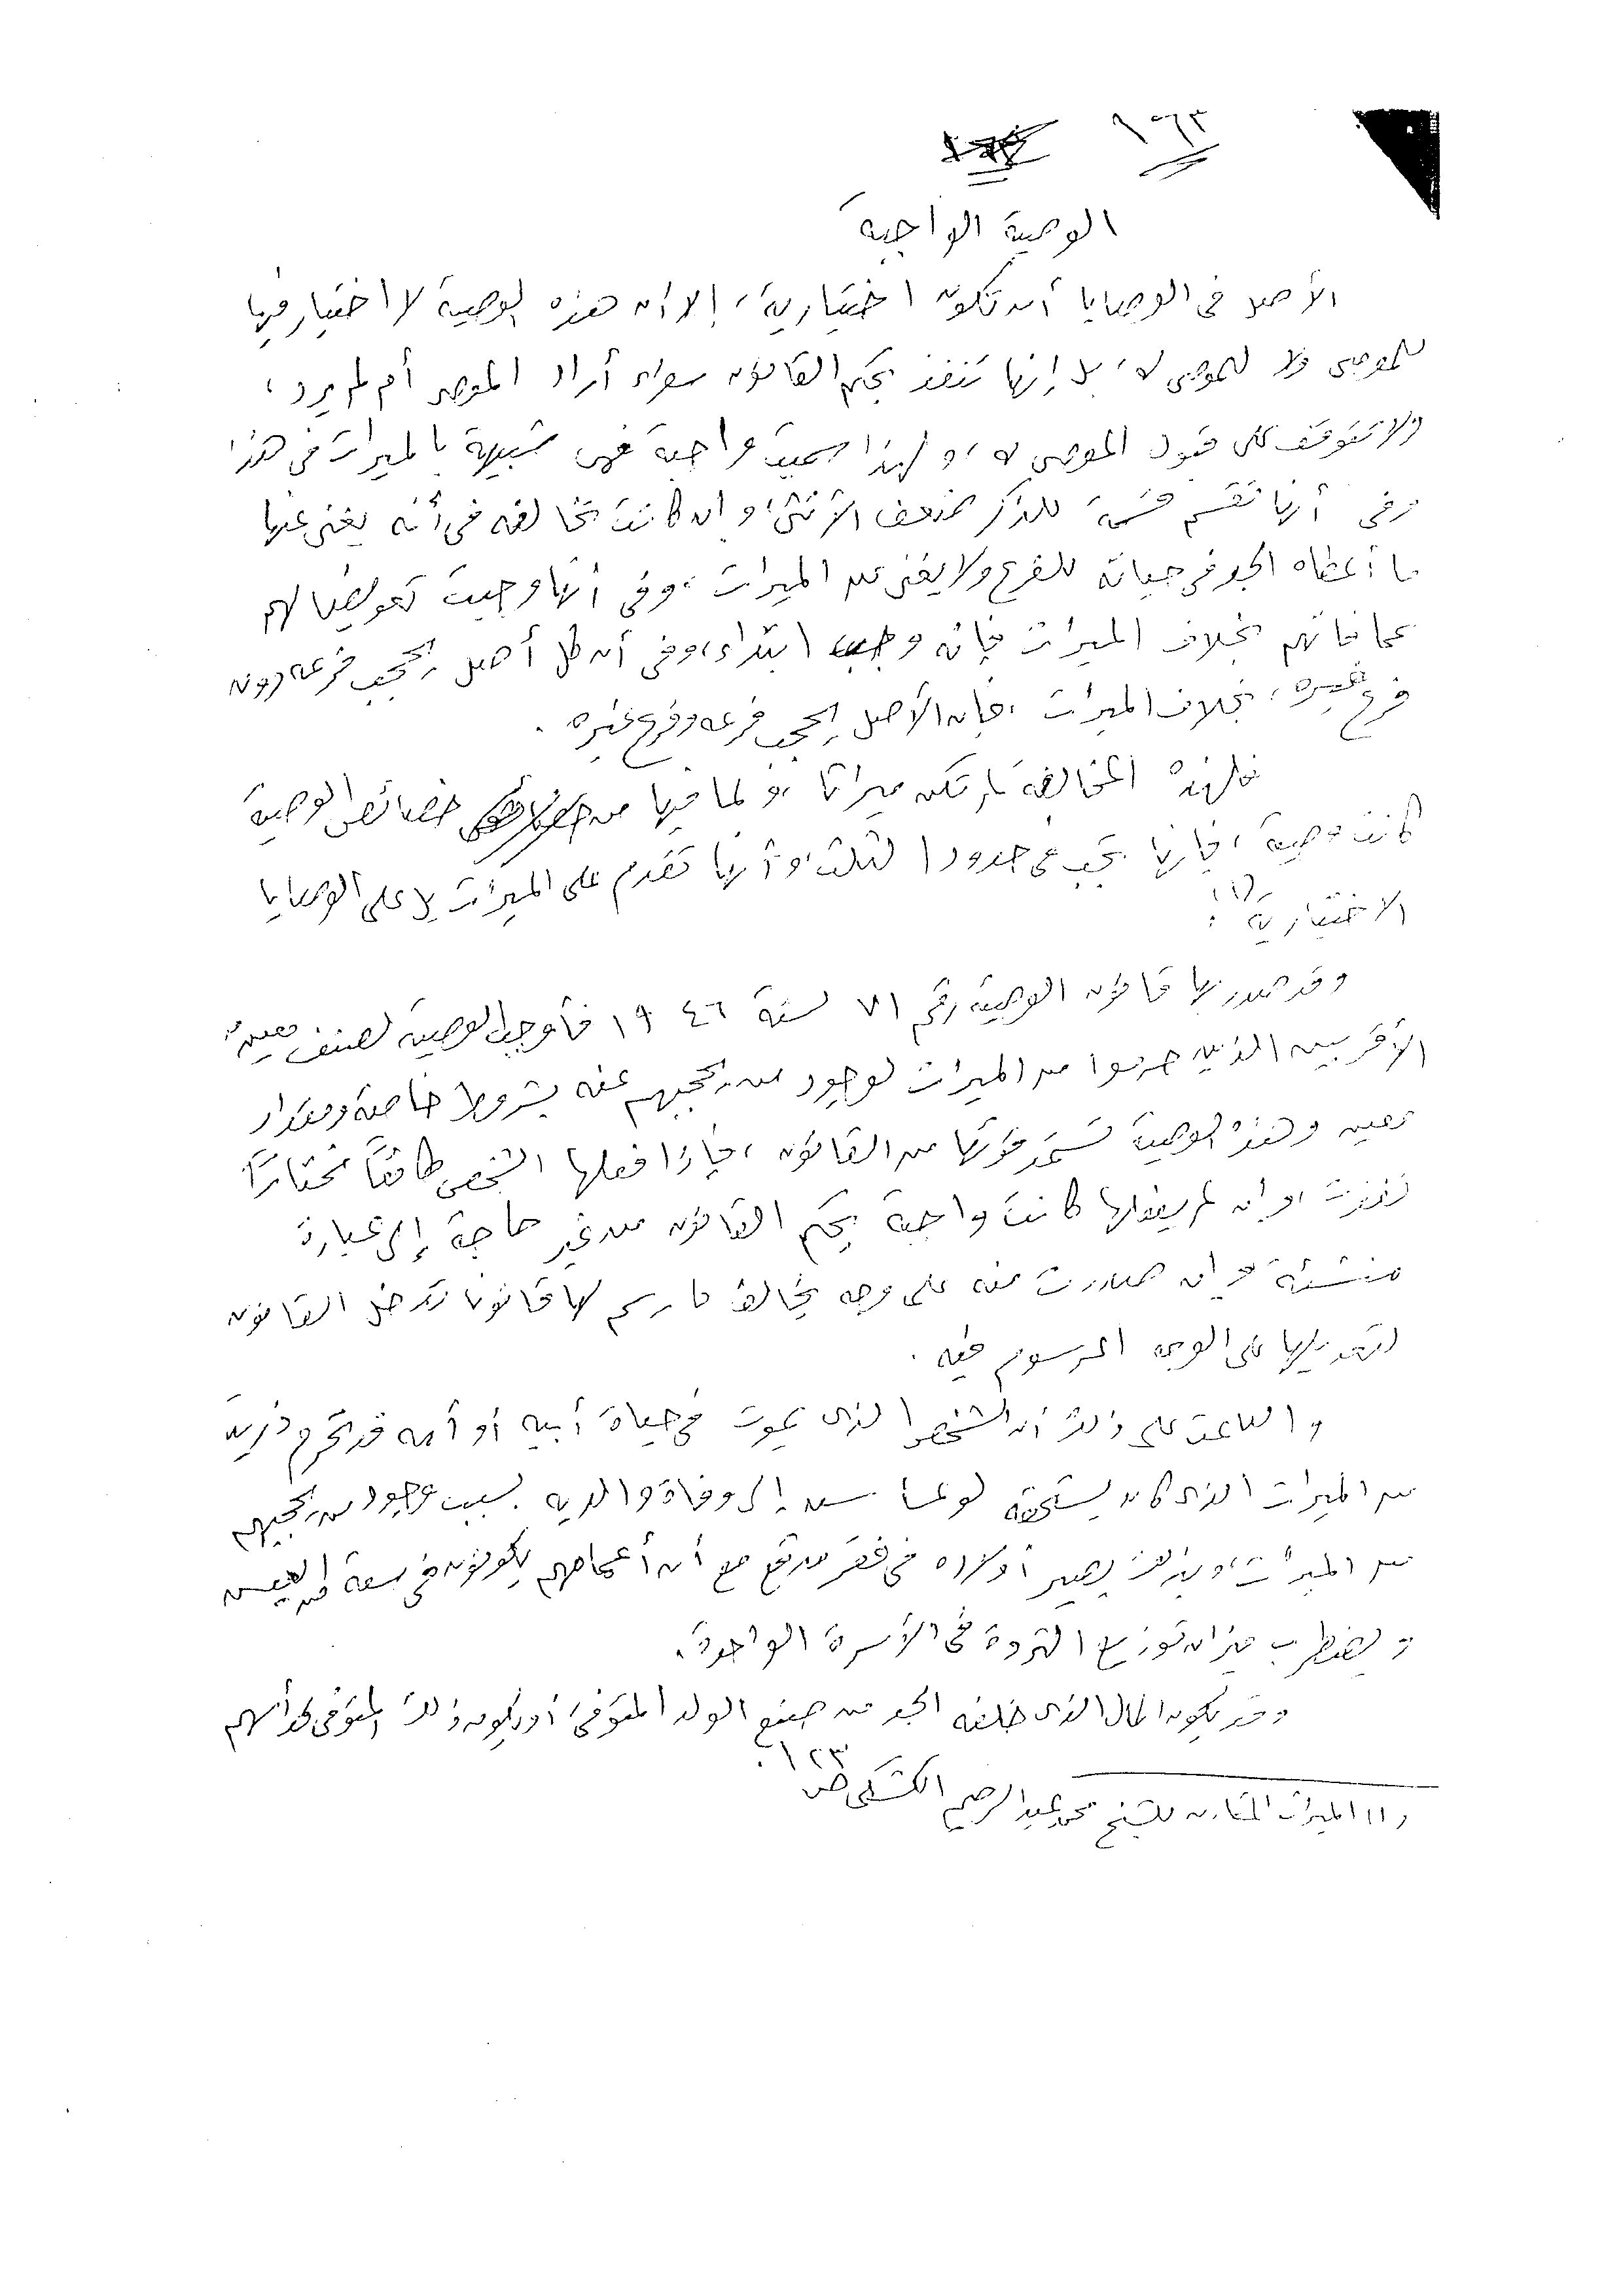 ١٦٣
الوصية الواجبة
الأصل فى الوصايا أن تكون اختيارية، إلا أن هذه الوصية لا اختيار فيها
للموصى ولا للموصى له، بل إنها تنفذ بحكم القانون سواء أراد الموصى أم لم يرد،
ولا تتوقف على قبول الموصى له، ولهذا سميت واجبة فهى شبيهة بالميراث فى هذا
وفى أنها تقسم قسمة للذكر ضعف الأنثى، وان كانت تخالفه فى أنه يغنى عنها
ما أعطاه الجد فى حياته للفرع ولا يغنى عن الميراث، وفى أنها وجبت تعويضا لهم
عما فاتهم بخلاف الميراث فإنه وجب ابتداء، وفى أن كل أصل يحجب فرعه دون
فرع غيره، بخلاف الميراث، فإن الأصل يحجب فرعه وفرع غيره.
فلهذه المخالفة لم تكن ميراثا، ولما فيها من خصائص الوصية
كانت وصية، فإنها تجب فى حدود الثلث، وأنها تقدم على الميراث لا على الوصايا
الاختيارية (١).
وقد صدر بها قانون الوصية رقم ٧١ لسنة ١٩٤٦ فأوجب الوصية لصنف معين من
الأقربين الذين حرموا من الميراث لوجود من يحجبهم عنه بشروط خاصة ومقدار
معين وهذه الوصية تستمد قوتها من القانون، فإذا فعلها الشخص طائعا مختارًا
نفذت، وإن لم يفعلها كانت واجبة بحكم القانون من غير حاجة إلى عبارة
منشئة وإن صدرت منه على وجه يخالف ما رسم لها قانونا تدخل القانون
لتعديلها على الوجه المرسوم فيه.
والباعث على ذلك أن الشخص الذى يموت فى حياة أبيه أو أمه قد تحرم ذريته
من الميراث الذى كان يستحقه لو عاش إلى وفاة والديه بسبب وجود من يحجبهم
من الميراث، وبذلك يصير أولاده فى فقر مدقع مع أن أعمامهم يكونون فى سعة من العيش
ويضطرب ميزان توزيع الثروة فى الأسرة الواحدة.
وقد يكون المال الذى خلفه الجد من صنع الولد المتوفى، أو يكون ذلك المتوفى
(١) الميراث المقارن للشيخ محمد عبد الرحيم الكشكى ص ١٢٣.